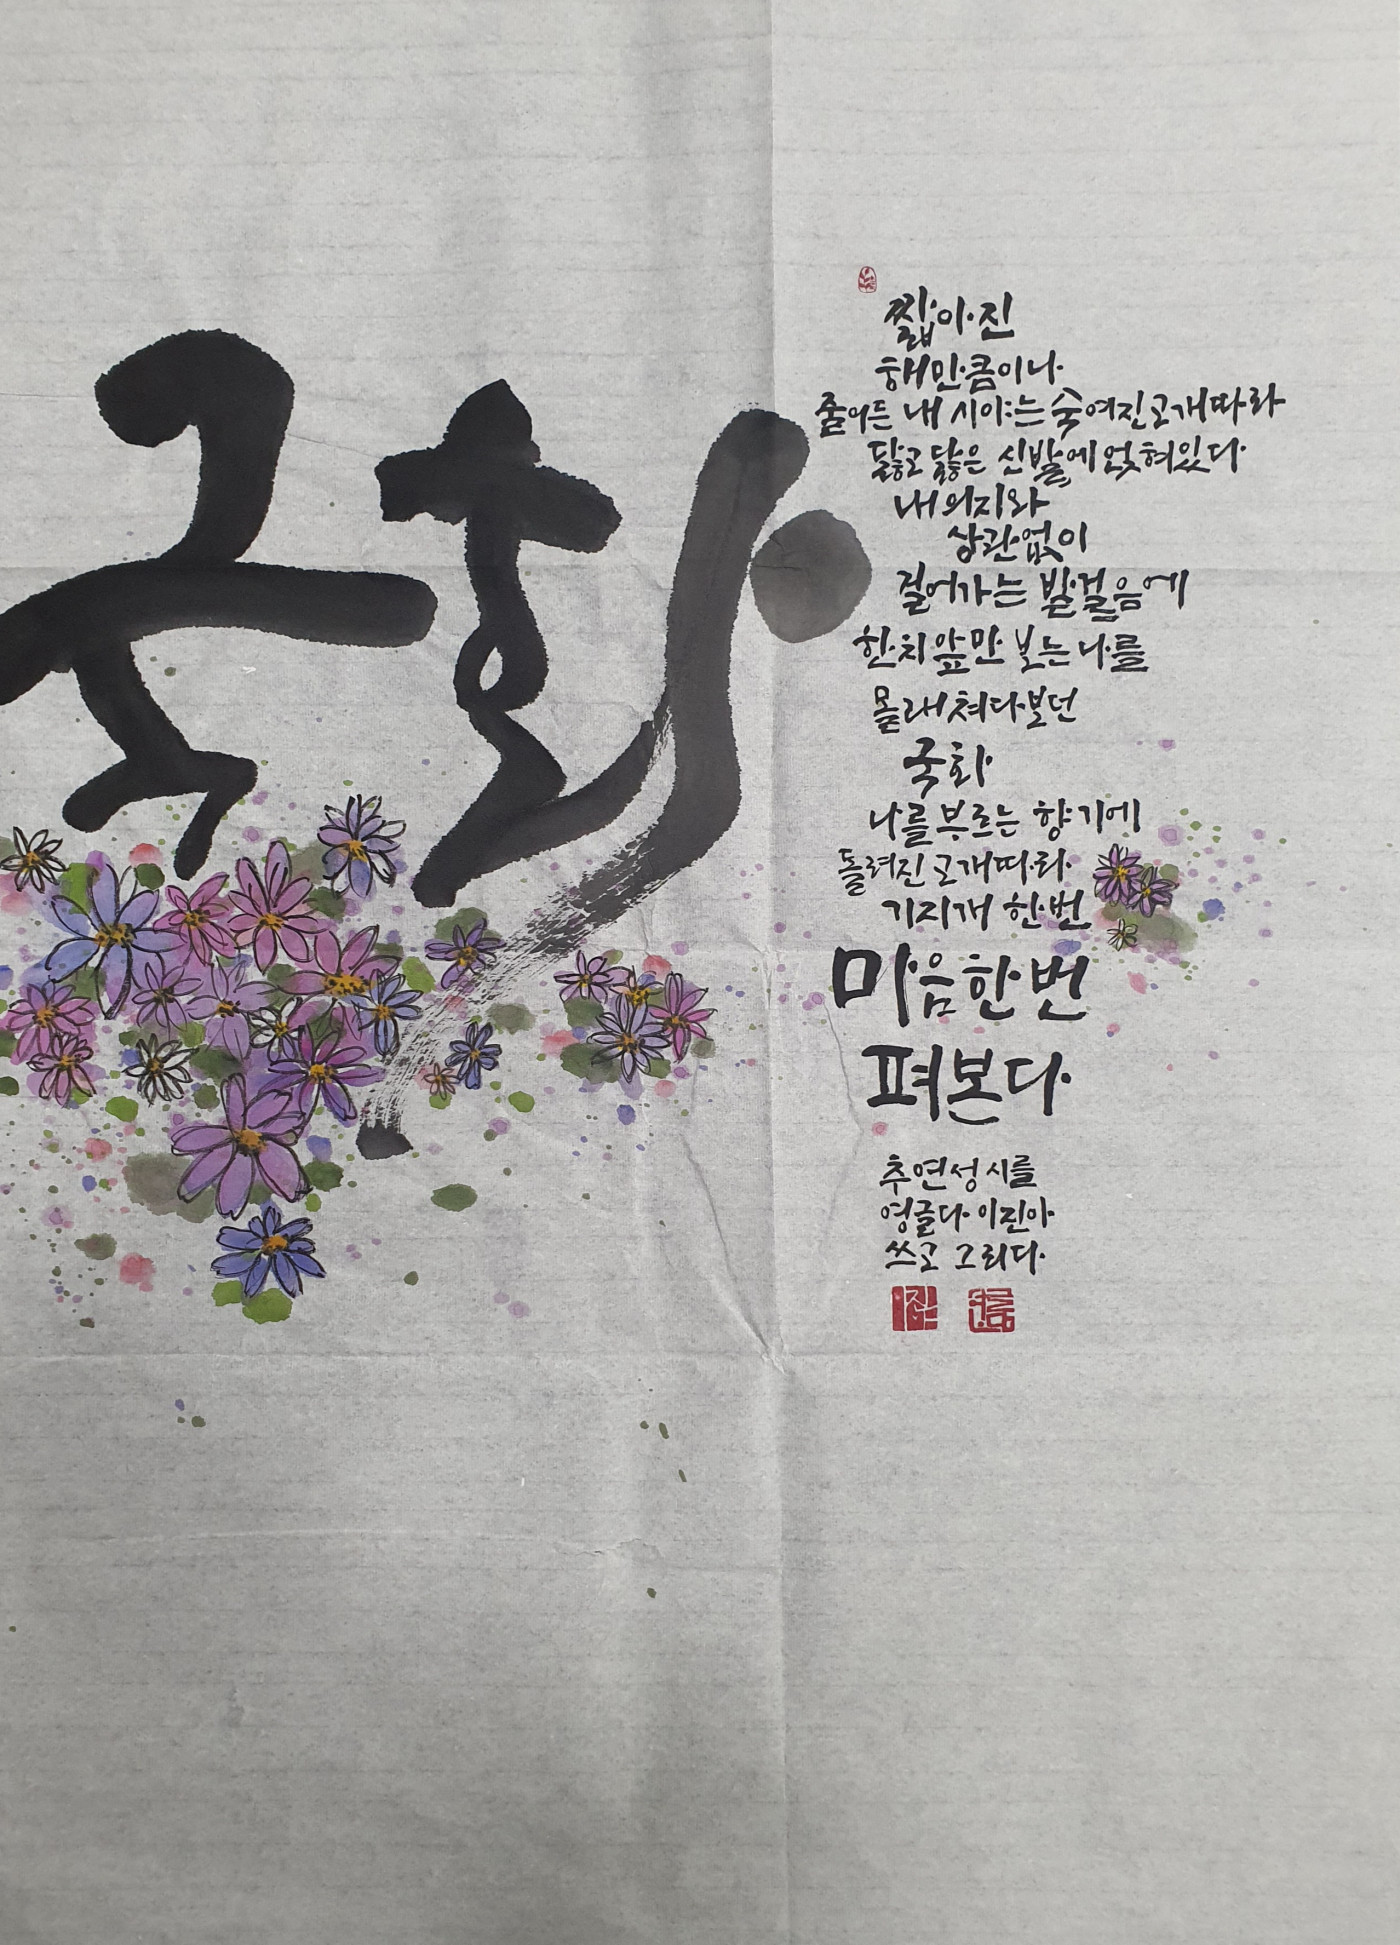 국화
짧아진
해만큼이나
줄어든 내 시야는 숙여진 고개따라
닳고 닳은 신발에 얹혀있다
내 의지와
상관없이
걸어가는 발걸음에
한치앞만 보는 나를
몰래 쳐다보던
국화
나를 부르는 향기에
돌려진 고개따라
기지개 한번
마음한번
펴본다
추연성 시를
영글다 이진아
쓰고 그리다